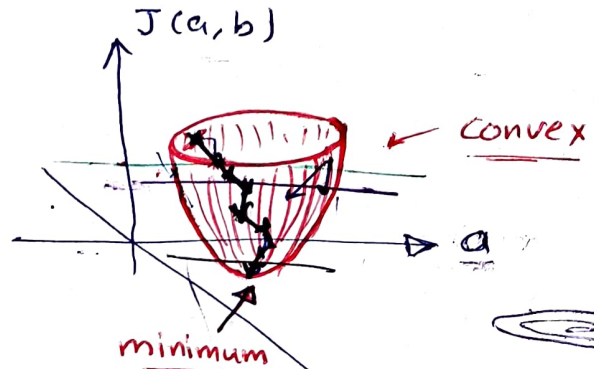 J(a,b)
convex
a
minimum